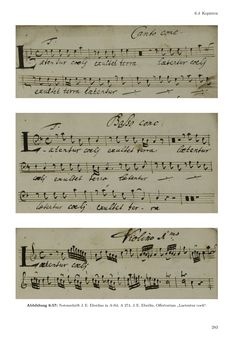 6.4 Kopisten
Canto conc.
T.
Laetentur coeli exultet terra laetentur coeli
exultet terra laetentur
Basso conc.
T.
Laetentur coeli exultet terra laetentur
coeli exultet terra laetentur
laetentur coeli exultet ter- ra
Violino
T.
Laetentur coeli
Abbildung 6.57: Notenschrift J. E. Eberlins in A-Sd, A 274, J. E. Eberlin, Offertorium „Laetentur coeli“
293